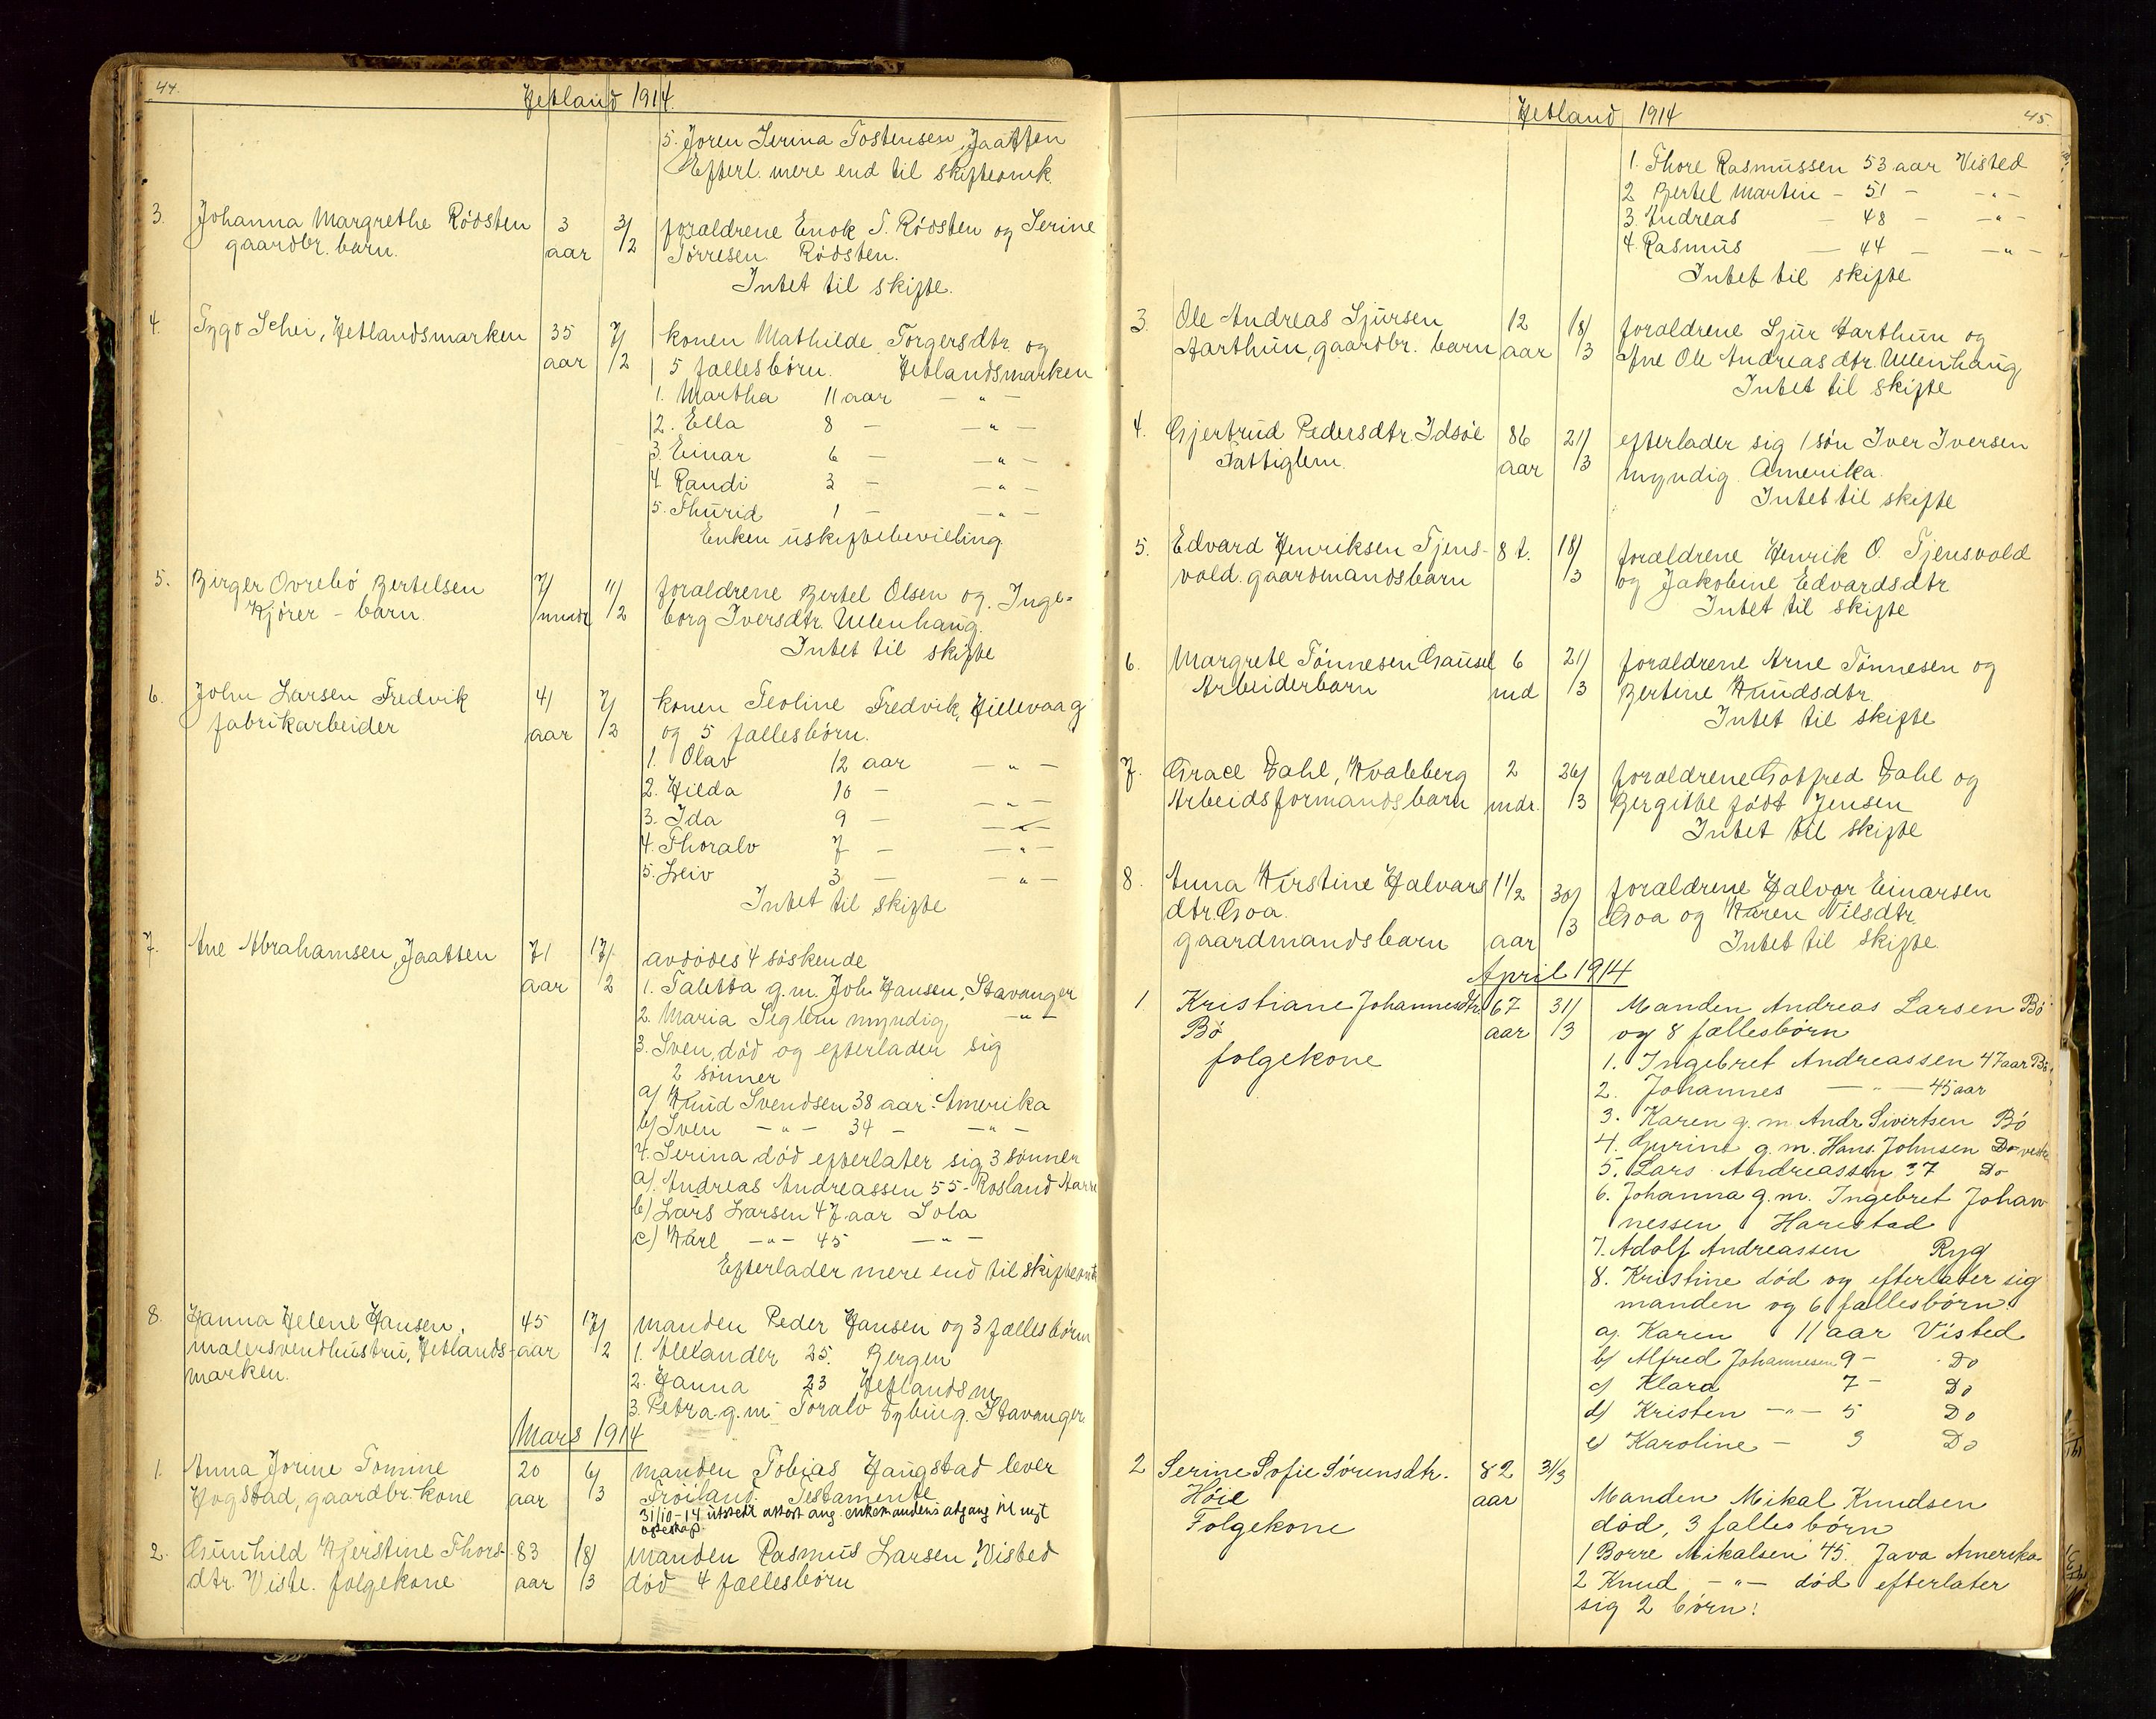 44.
Hetland 1914.
5. Joren Serina Tostensen, Jaatten
Efterl. mere end til skifteomk.
3. Johanna Margrethe Rödsten 3 3/ forældrene Enok S. Rödsten og Serine
gaardbr. barn. aar /2 Törresen Rödsten.
Intet til skifte.
4. Tygo Schei, Hetlandsmarken 35 7/ konen Mathilde Torgersdtr. og
aar /2 5 fællesbörn. Hetlandsmarken
1. Martha 11 aar — " —
2. Ella 8 — — " —
3. Einar 6 — — " —
4. Randi 3 — — " —
5. Thurid 1 — — " —
Enken uskiftebevilling
5. Birger Ovrebö Bertelsen 7/ 11/ forældrene Bertel Olsen og Inge-
Kjörer - barn. mndr /2 borg Iversdtr. Ullenhaug.
Intet til skifte
6. John Larsen Fredvik 41 7/ konen Teoline Fredvik, Hillevaag
fabrikarbeider aar /2 og 5 fællesbörn.
1. Olav 12 aar — " —
2. Hilda 10 — — " —
3. Ida 9 — — " —
4. Thoralv 7 — — " —
5. Leiv 3 — — " —
Intet til skifte
7. Ane Abrahamsen, Jaatten 71 17/ avdödes 4 söskende
aar /2 1. Taletta g.m. Joh Hansen, Stavanger
2. Maria Seglem myndig, — " —
3. Sven, död og efterlader sig
2 sönner
a/ Knud Svendsen 38 aar. Amerika
b/ Sven — " — 34 — — " —
4. Serina död efterlater sig 3 sönner
a/. Andreas Andreassen 55 - Rosland
b/ Lars Larsen 47 aar Sola
c/ Karl — " — 45 — " —
Efterlader mere end til skifteomk
8. Hanna Helene Hansen, 45 17/ manden Peder Hansen og 3 fællesbörn
malersvendhustru, Hetlands- aar /2 1. Alexander 25. Bergen
marken. 2. Hanna 23 Hetlandsm
3. Petra g.m. Toralv Stavanger.
Mars 1914
1. Anna Jorine Tomine 20 6/ manden Tobias Haugstad lever
Hogstad, gaardbr. kone aar /3 Fröiland. Testamente
31/10-14 utstedt attest ang. enkemandens adgang til nyt
egteskap.
2. Gunhild Kjerstine Thors- 83 18/ manden Rasmus Larsen, Visted
dtr. Viste. folgekone aar /3 död 4 fællesbörn
Hetland 1914
45.
1. Thore Rasmussen 53 aar Visted
2 Bertel Martin — 51 — — " —
3. Andreas — 48 — — " —
4. Rasmus — 44 — — " —
Intet til skifte
3. Ole Andreas Sjursen 12 18/ forældrene Sjur Aarthun og
Aarthun, gaardbr. barn aar /3 Ane Ole Andreasdtr. Ullenhaug
Intet til skifte
4. Gjertrud Pedersdtr. Idsöe 86 21/ efterlader sig 1 sön Iver Iversen
Fattiglem. aar /3 myndig Amerika.
Intet til skifte
5. Edvard Henriksen Tjens- 8 t. 18/ forældrene Henrik O. Tjensvold
vold. gaardmandsbarn /3 og Jakobine Edvardsdtr
Intet til skifte
6. Margrete Tönnesen Gausel 6 21/ forældrene Arne Tönnesen og
Arbeiderbarn md /3 Bertine Knudsdtr.
Intet til skifte
7. Grace Dahl, Kvaleberg 2 26/ forældrene Gotfred Dahl og
Arbeidsformandsbarn mdr. /3 Bergithe født Jensen
Intet til skifte
8. Anna Kirstine Halvars 1 1/2 30/ forældrene Halvor Einarsen
dtr. Goa. /3 Goa og Karen Nilsdtr
gaardmandsbarn aar Intet til skifte.
April 1914
1 Kristiane Johannesdtr. 67 31/ Manden Andreas Larsen Bö
Bö aar /3 og 8 fællesbörn
folgekone 1. Ingebret Andreassen 47 aar Bö
2. Johannes — " — 45 aar
3. Karen g.m. Andr Sivertsen Bö
4. Gurine g.m. Hans Johnsen Do
5. Lars Andreassen 37 Do
6. Johanna g.m. Ingebret Johan
nessen Harestad
7. Adolf Andreassen Ryg
8. Kristine död og efterlater sig
manden og 6 fællesbörn.
a/ Karen 11 aar Visted
b/ Alfred Johannesen 9 — Do
c/ Klara 7 — Do
d/ Kristen — " — 5 Do
e/ Karoline — 3 Do
2 Serine Sofie Sörensdtr. 82 31/3
Höie aar Manden Mikal Knudsen
Folgekone död, 3 fællesbörn
1 Borre Mikalsen 45. Java Amerika
2 Knud — " — död efterlater
sig 2 börn: